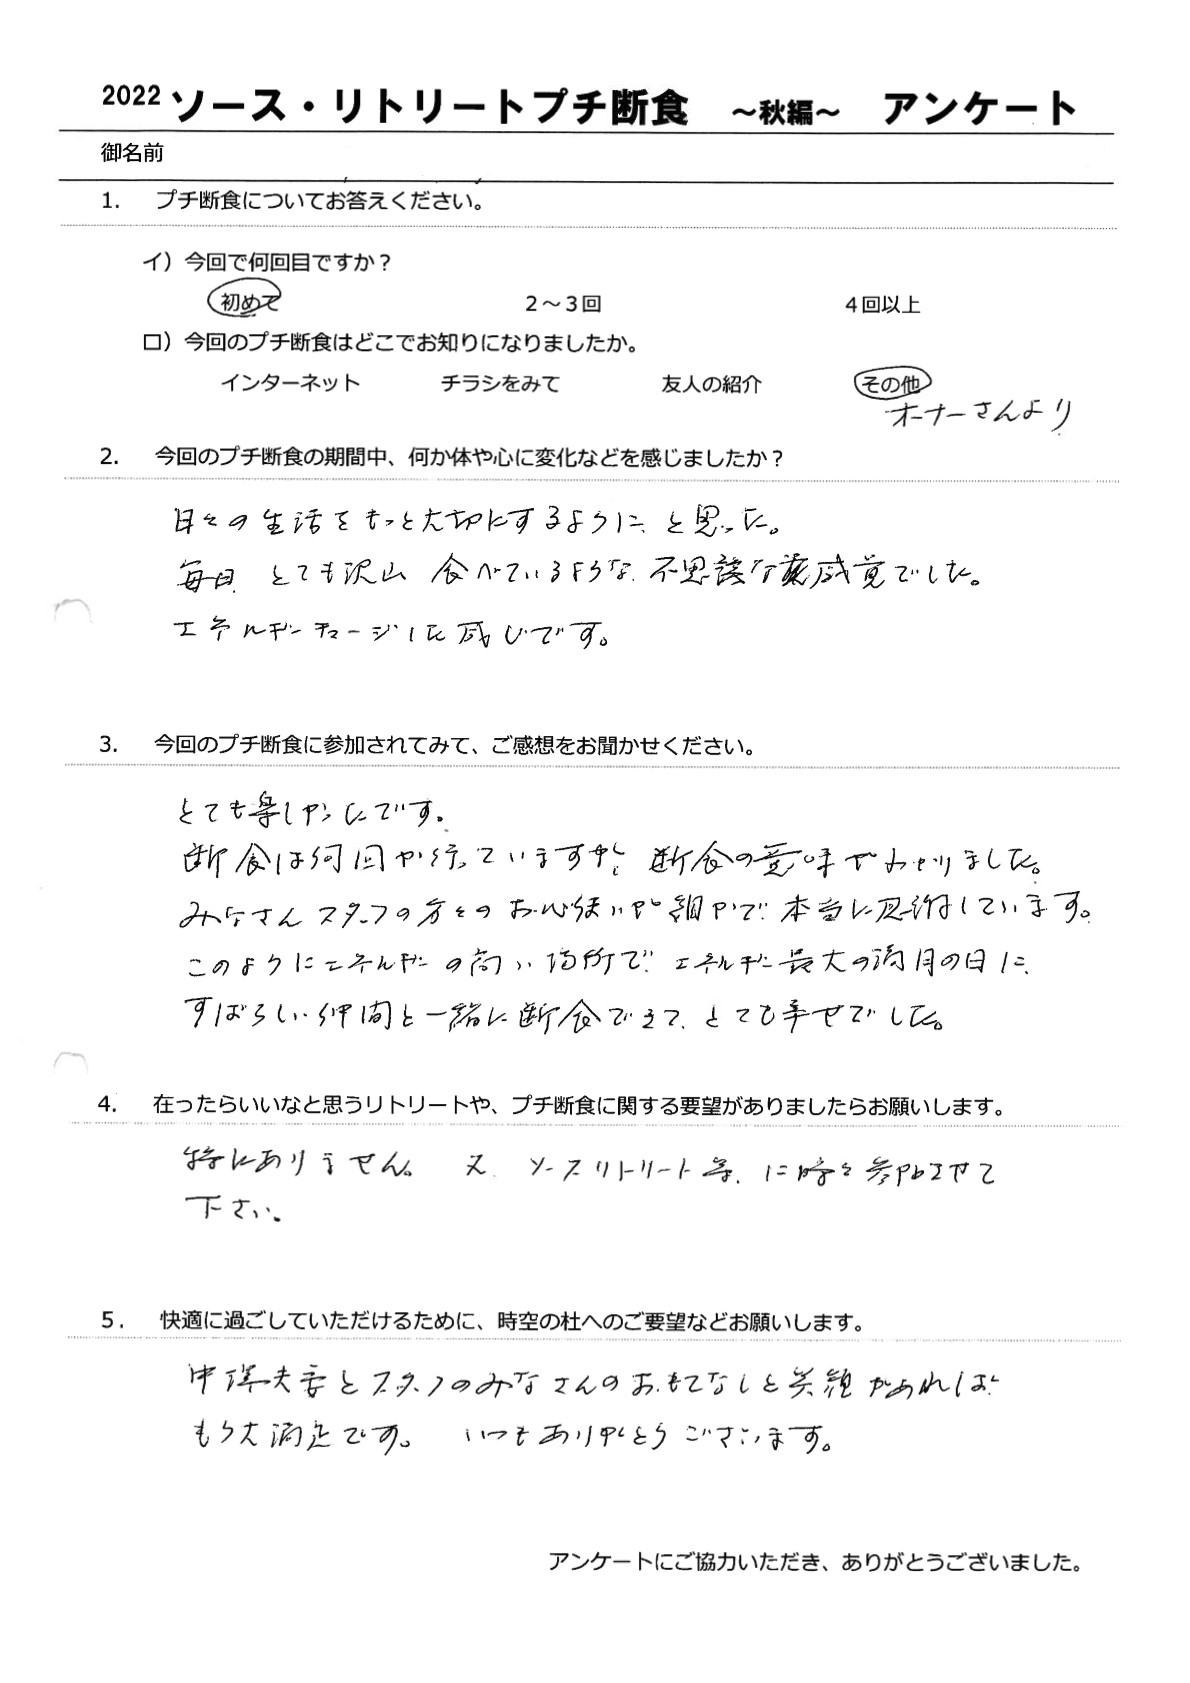 2022 ソース・リトリートプチ断食 ～秋編～ アンケート
御名前
1. プチ断食についてお答えください。
イ）今回で何回目ですか？
初めて 2～3回 4回以上
ロ）今回のプチ断食はどこでお知りになりましたか。
インターネット チラシをみて 友人の紹介 その他
オーナーさんより
2. 今回のプチ断食の期間中、何か体や心に変化などを感じましたか？
日々の生活をもっと大切にするように、と思った。
毎日、とても沢山 食べているような、不思議な感覚でした。
エネルギーチャージした感じです。
3. 今回のプチ断食に参加されてみて、ご感想をお聞かせください。
とても楽しかったです。
断食は何回か行っていますが、断食の意味がわかりました。
みなさんスタッフの方々のお心使いが細やかで、本当に感謝しています。
このようにエネルギーの高い場所で、エネルギー最大の満月の日に、
すばらしい仲間と一緒に断食できて、とても幸せでした。
4. 在ったらいいなと思うリトリートや、プチ断食に関する要望がありましたらお願いします。
特にありません。 又、ソースリトリート等、に時々参加させて
下さい。
5. 快適に過ごしていただけるために、時空の杜へのご要望などお願いします。
夫妻とスタッフのみなさんのおもてなしと笑顔があれば
もう大満足です。 いつもありがとうございます。
アンケートにご協力いただき、ありがとうございました。